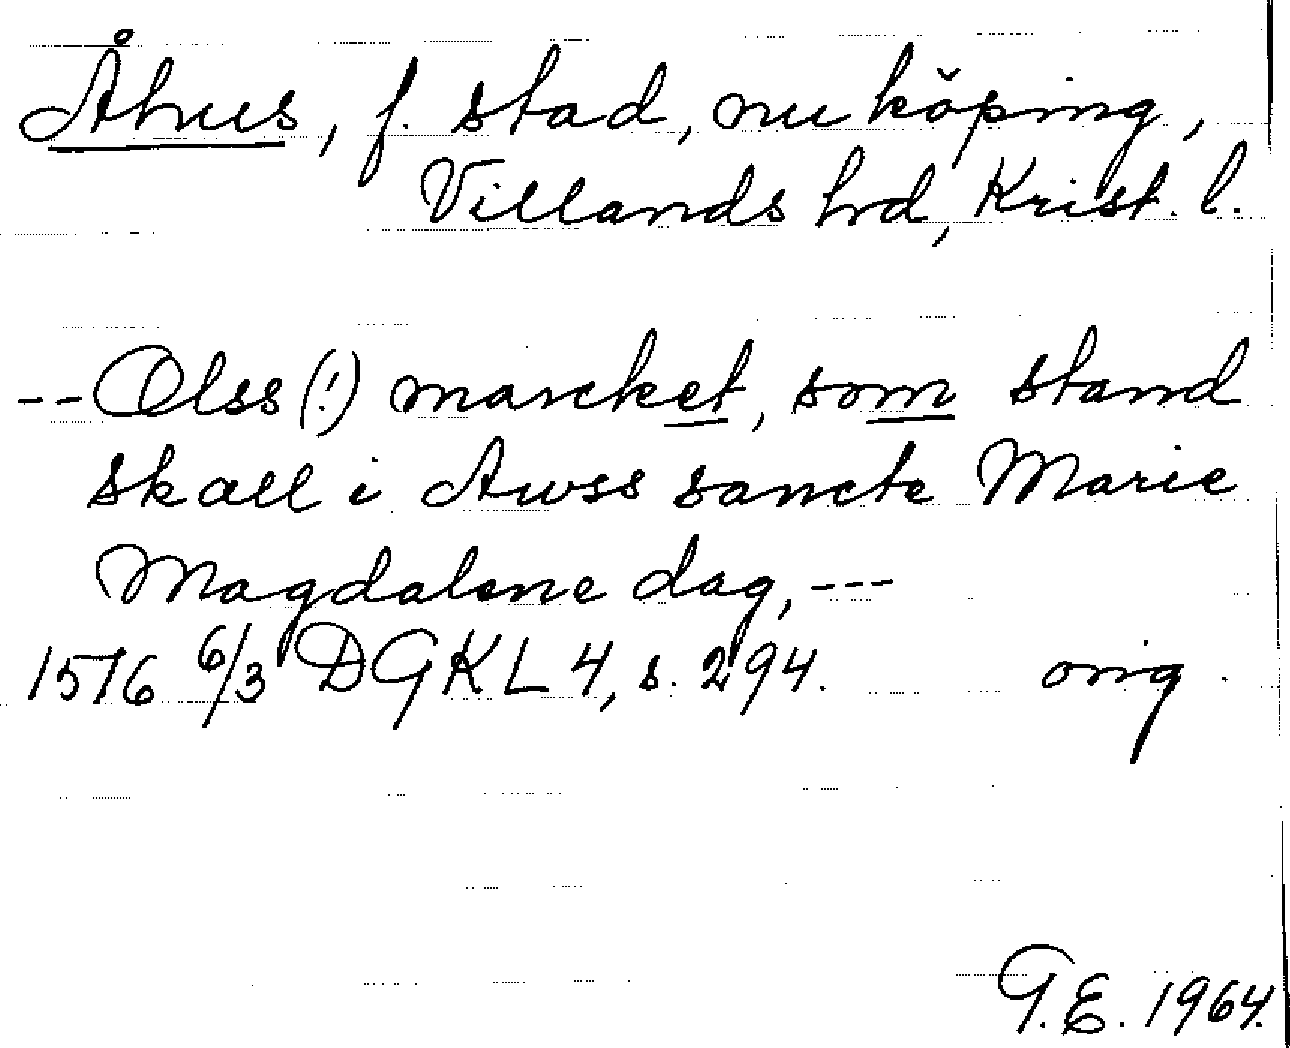 Åhus, f. stad, nu köping,
Villands hrd, Krist. l.
-- Olss (!) marcket, som stand
skall i Awss sancte Marie
Magdalene dag, ---
1576 6/3 DGKL 4, s. 294. orig.
G.E. 1964.